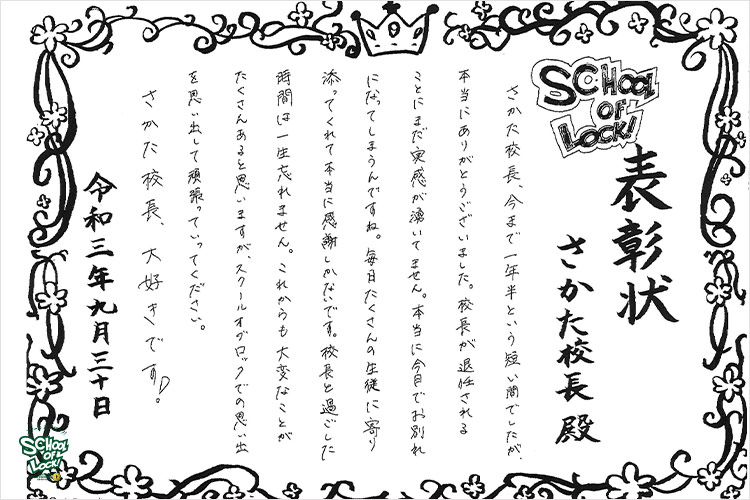 SCHOOL
OF
LOCK!
表彰状
さかた校長 殿
さかた校長、今まで一年半という短い間でしたが、
本当にありがとうございました。校長が退任される
ことにまだ実感が湧いてません。本当に今日でお別れ
になってしまうんですね。毎日たくさんの生徒に寄り
添ってくれて本当に感謝しかないです。校長と過ごした
時間は一生忘れません。これからも大変なことが
たくさんあると思いますが、スクールオブロックでの思い出
を思い出して頑張っていってください。
さかた校長、大好きです。
令和三年九月三十日
SCHOOL
OF
LOCK!